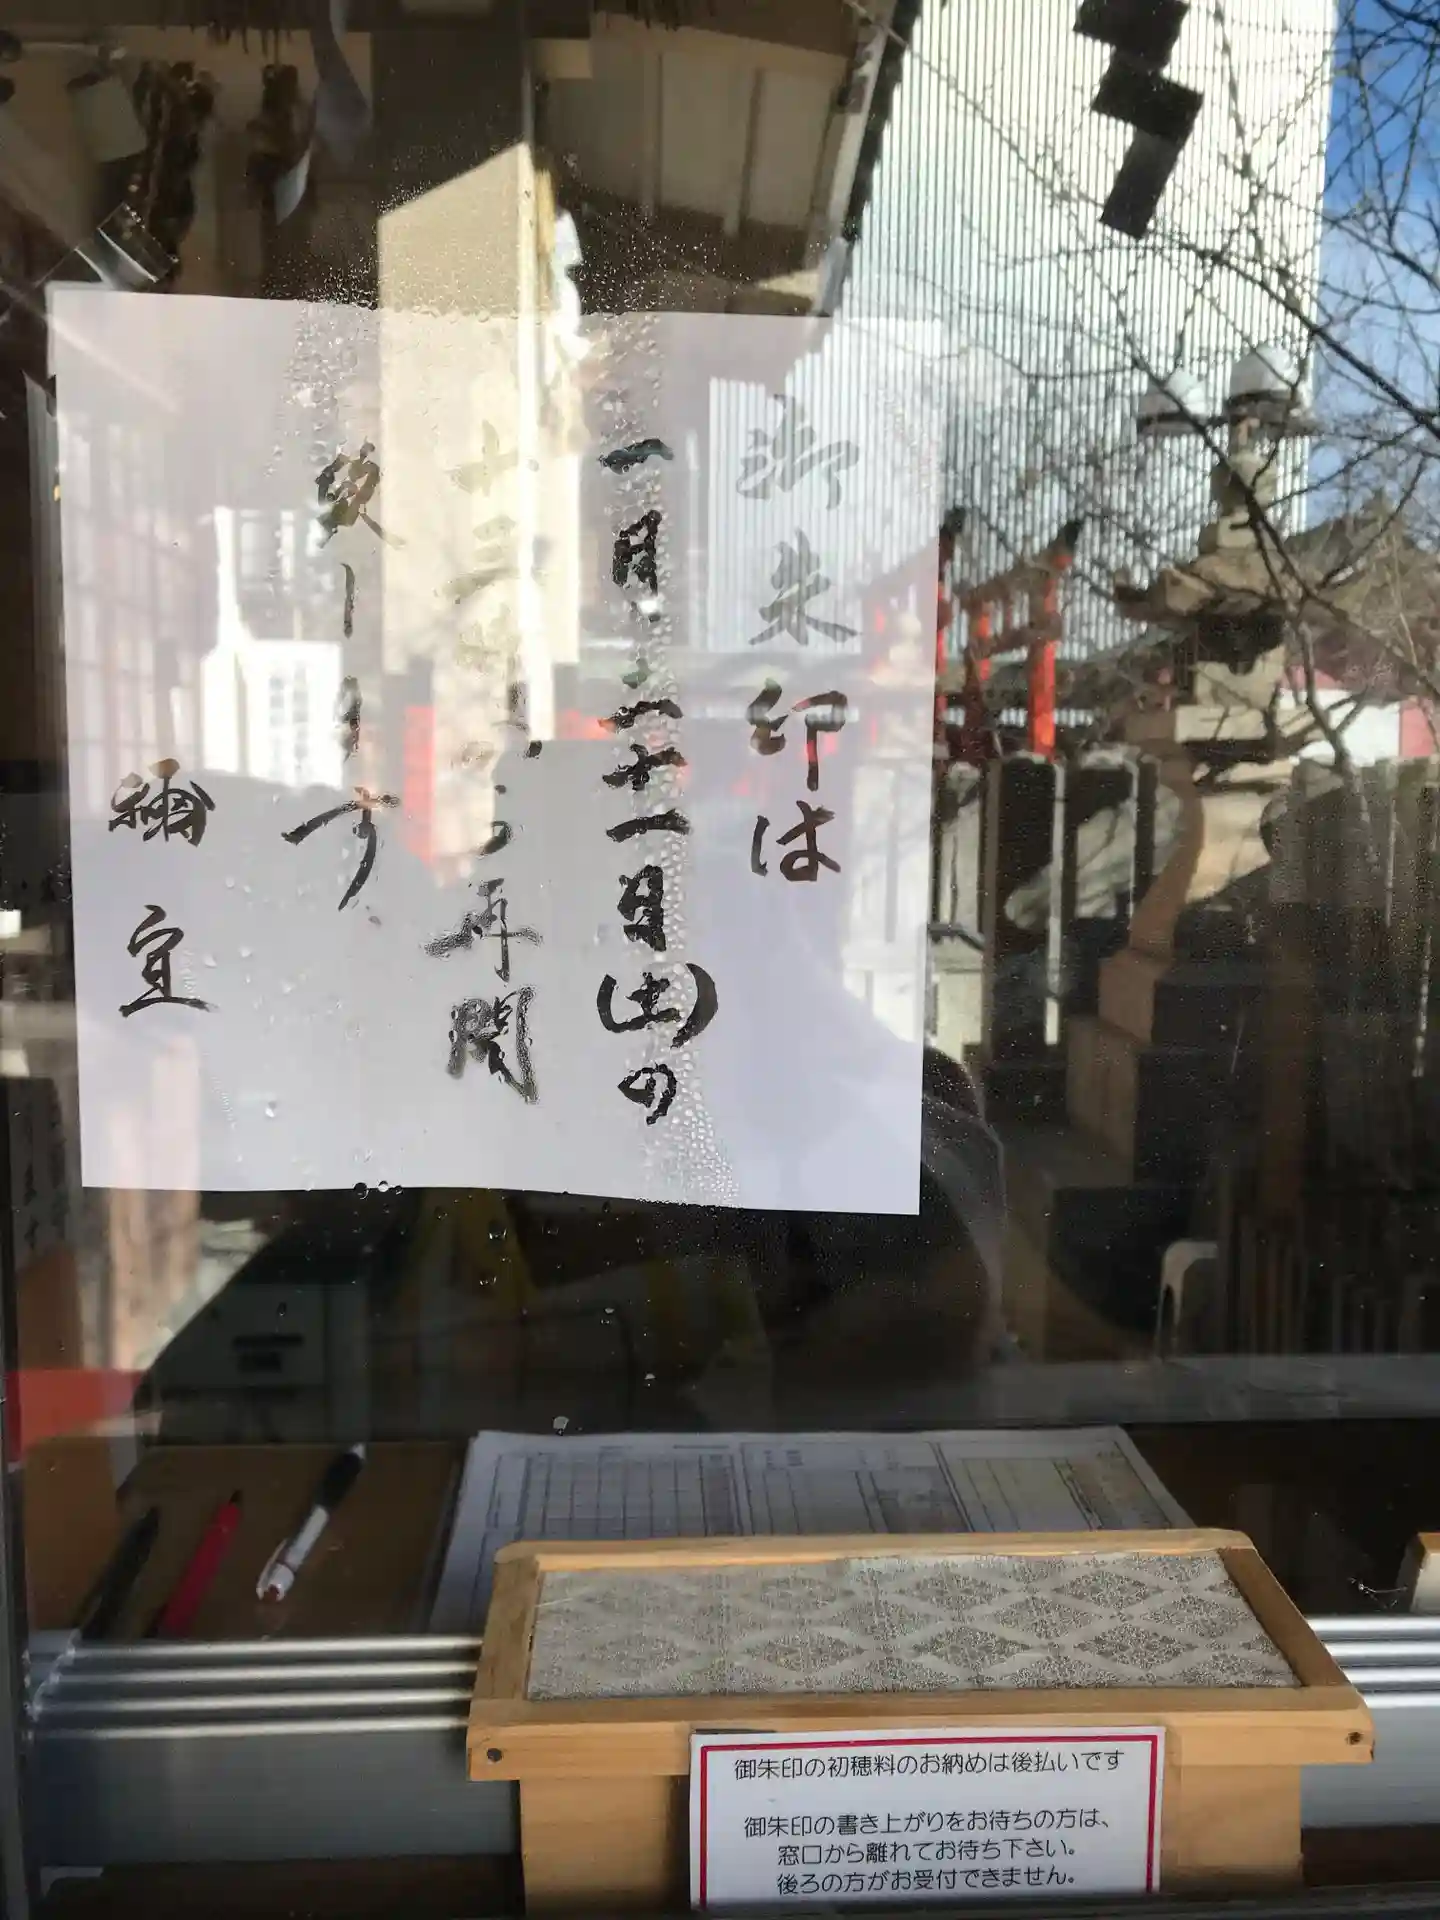 御朱印は
一月二十一日(土)の
十三時から再開
致します
禰宜
御朱印の初穂料のお納めは後払いです
御朱印の書き上がりをお待ちの方は、
窓口から離れてお待ち下さい。
後ろの方がお受付できません。